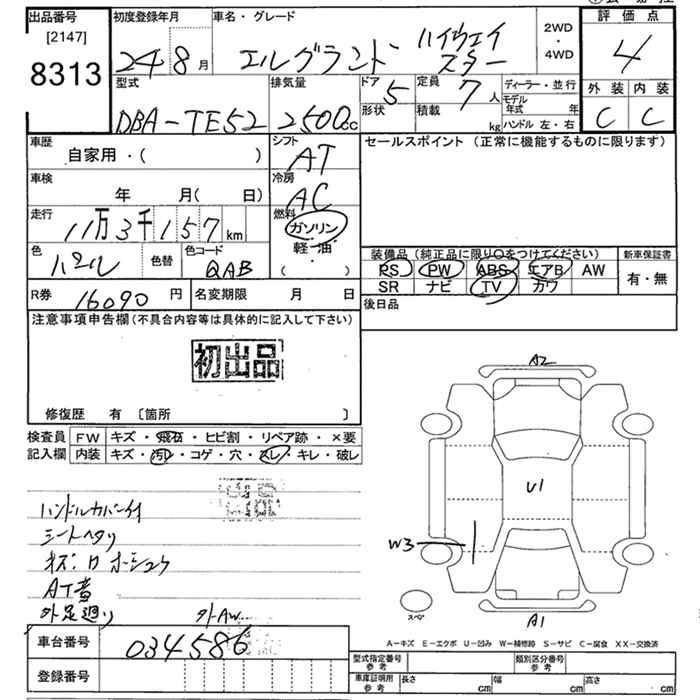 出品番号 [2147] 8313
初度登録年月 24年8月
車名・グレード エルグランド ハイウェイスター
2WD・4WD
評価点 4
外装 内装
C C
型式 DBA-TE52
排気量 2500cc
ドア 形状 5
定員 7人
積載 kg
ディーラー・並行
モデル年式 年
ハンドル 左・右
車歴 自家用・( )
シフト AT
車検 年 月( 日)
冷房 AC
走行 11万3千157km
燃料 ガソリン 軽・油・( )
色 パール 色替
色コード QAB
R券 16090円
名変期限 月 日
セールスポイント (正常に機能するものに限ります)
装備品 (純正品に限り○をつけてください)
PS PW ABS エアB AW
SR ナビ TV カワ
新車保証書
有・無
後日品
注意事項申告欄 (不具合内容等は具体的に記入して下さい)
初出品
修復歴 有 〔箇所 〕
検査員 FW キズ・飛石・ヒビ割・リペア跡・×要
記入欄 内装 キズ・汚レ・コゲ・穴・スレ・キレ・破レ
ハンドルカバー付
シートヘタリ
キズ:ロ ホーシュウ
AT音
外足廻り 外AW
A2
U1
W3
スペア
A1
A-キズ E-エクボ U-凹み W-補修跡 S-サビ C-腐食 XX-交換済
車台番号 034586
登録番号
型式指定番号 参考
類別区分番号 参考
車庫証明用 参考 長さ cm 幅 cm 高さ cm